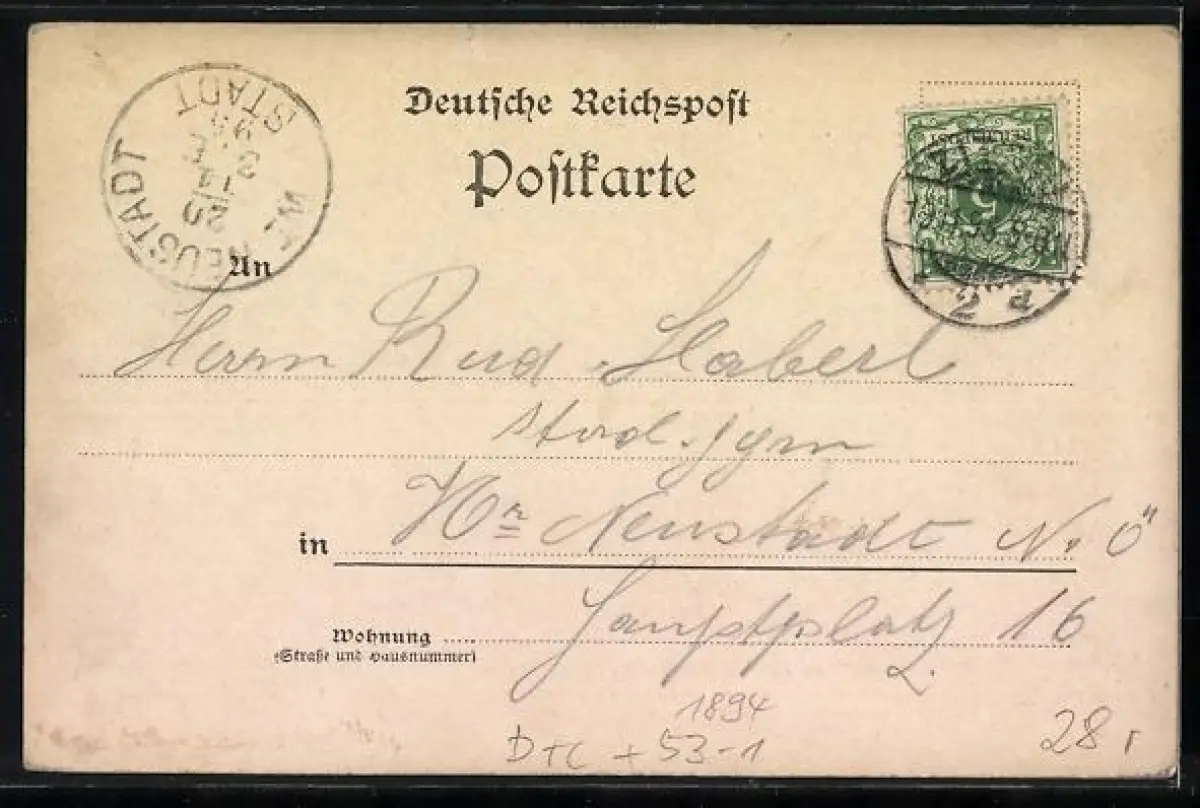 Deutsche Reichspost
Postkarte
W. NEUSTADT
STADT
REICHSPOST
5
2 a
An
Herrn Rud. Haberl
stud. gym
in Wr Neustadt N. Ö
Wohnung Hauptplatz 16
(Straße und Hausnummer)
2.
1894
DTC + 53-1
28